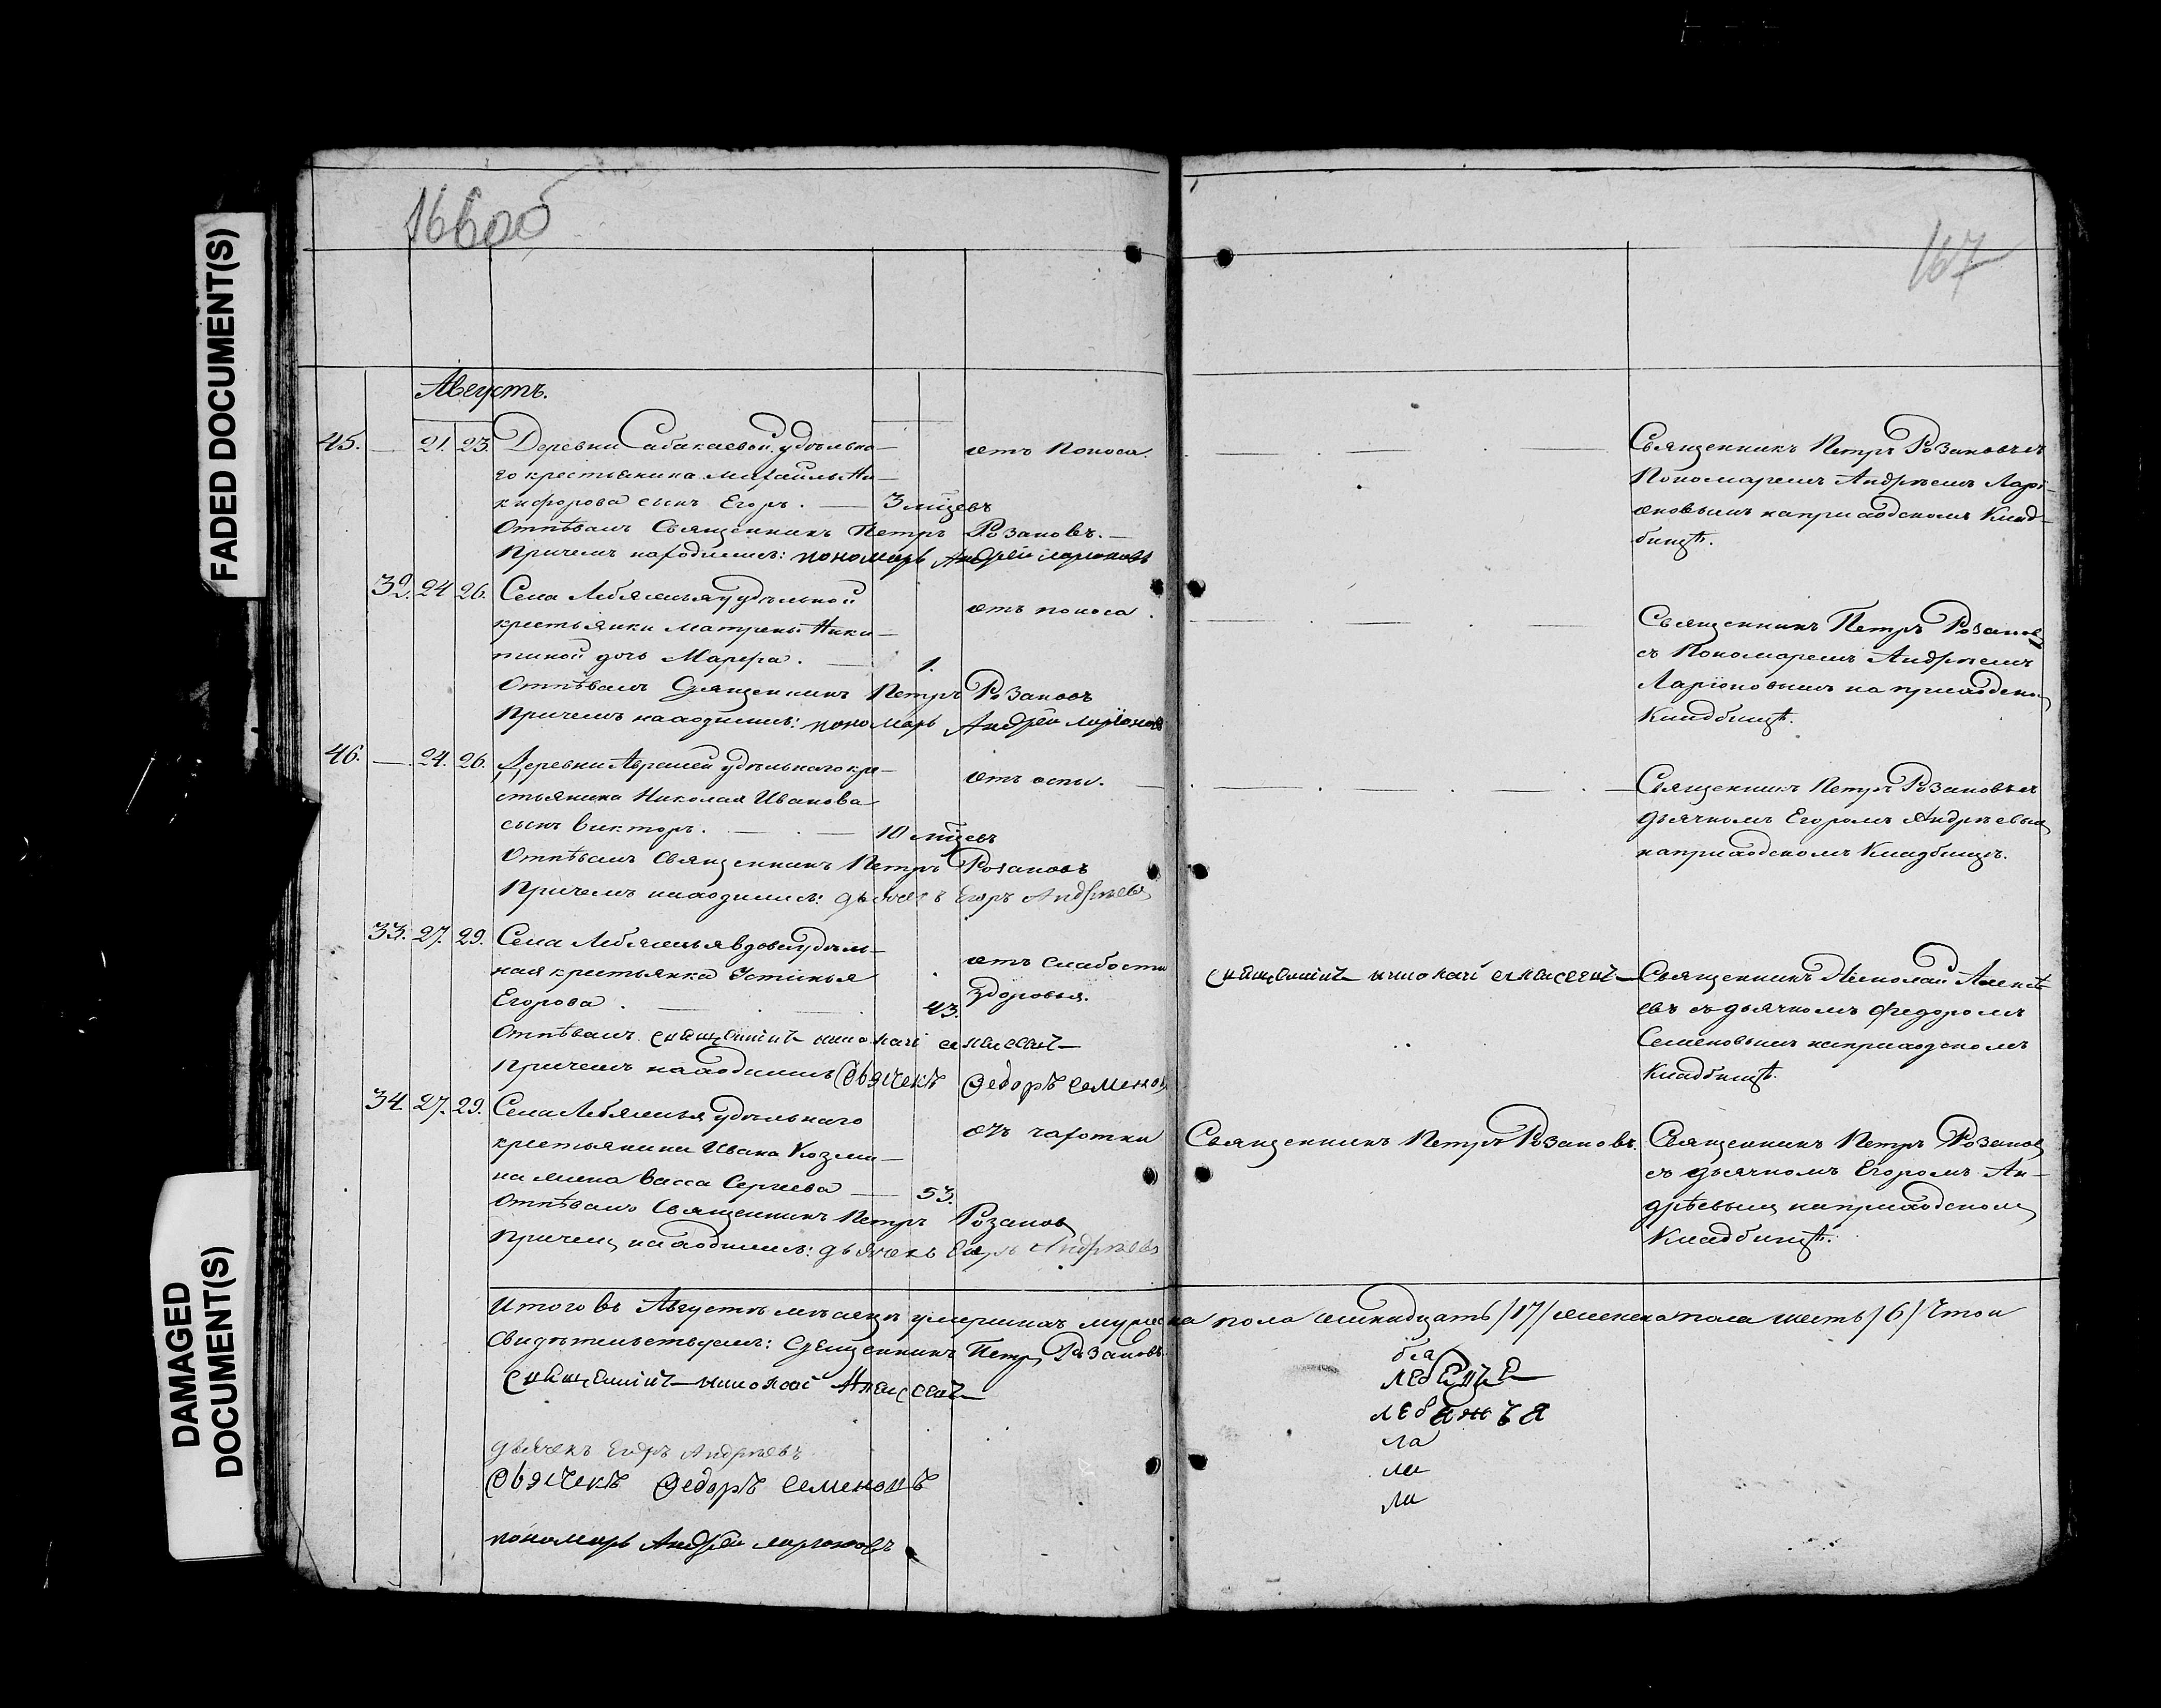 FADED DOCUMENT(S)
DAMAGED DOCUMENT(S)
166об
167
Августъ.
45. — 21. 23. Деревни Сабакаевой удѣльна-
го крестьянина Михаилы Ни-
кифорова сынъ Егоръ. — 3 мц̃евъ
отъ поноса.
Отпѣвалъ Священникъ Петръ Розановъ. —
Причемъ находились: пономарь Андрей Ларионовъ
Священникъ Петръ Розановъ съ
Пономаремъ Андреемъ Ларі-
оновымъ на приходскомъ Клад-
бищѣ.
32. 24 26. Села Лебяжья удѣльной
крестьянки Матрены Ники-
тиной дочь Марфа. — 1.
отъ поноса.
Отпѣвалъ Священникъ Петръ Розановъ
Причемъ находились: пономарь Андрей Ларіоновъ
Священникъ Петръ Розановъ
съ Пономаремъ Андреемъ
Ларіоновымъ на приходском
Кладбищѣ.
46. — 24. 26. Деревни Авралей удѣльнаго кре-
стьянина Николая Иванова
сынъ Викторъ. — 10 мц̃евъ
отъ оспы. —
Отпѣвалъ Священникъ Петръ Розановъ
Причемъ находились: дьячекъ Егоръ Андреевъ
Священникъ Петръ Розановъ съ
дьячкомъ Егоромъ Андреевым
на приходскомъ Кладбищѣ.
33. 27. 29. Села Лебяжья вдова удѣль-
ная крестьянка Устинья
Егорова. — 43.
отъ слабости
здоровья.
Отпѣвалъ Священникъ Николай Алексеевъ
Причемъ находились Дьячекъ Федоръ Семенов
Священникъ Николай Алексеевъ
Священникъ Николай Алексѣ-
евъ съ дьячкомъ Федоромъ
Семеновымъ на приходскомъ
Кладбищѣ.
34. 27. 29. Села Лебяжья удѣльнаго
крестьянина Ивана Козми-
на жена Васса Сергеева — 53.
отъ чахотки
Отпѣвалъ Священникъ Петръ Розанов
Причем находились: дьячекъ Егоръ Андреевъ
Священникъ Петръ Розановъ.
Священникъ Петръ Розанов
съ дьячкомъ Егоромъ Ан-
дрѣевым на приходском
Кладбищѣ.
Итого въ Августѣ месяцѣ умершихъ мужеска пола семнадцать /17/ женска пола шесть /6/ Что и
свидѣтельствуемъ: Священникъ Петръ Розановъ
Священникъ Николай Алексеевъ
дьячекъ Егоръ Андреевъ
Дьячекъ Федоръ Семеновъ
пономарь Андрей Ларионовъ
лебяжье
лебяжья
ла
ла
ла